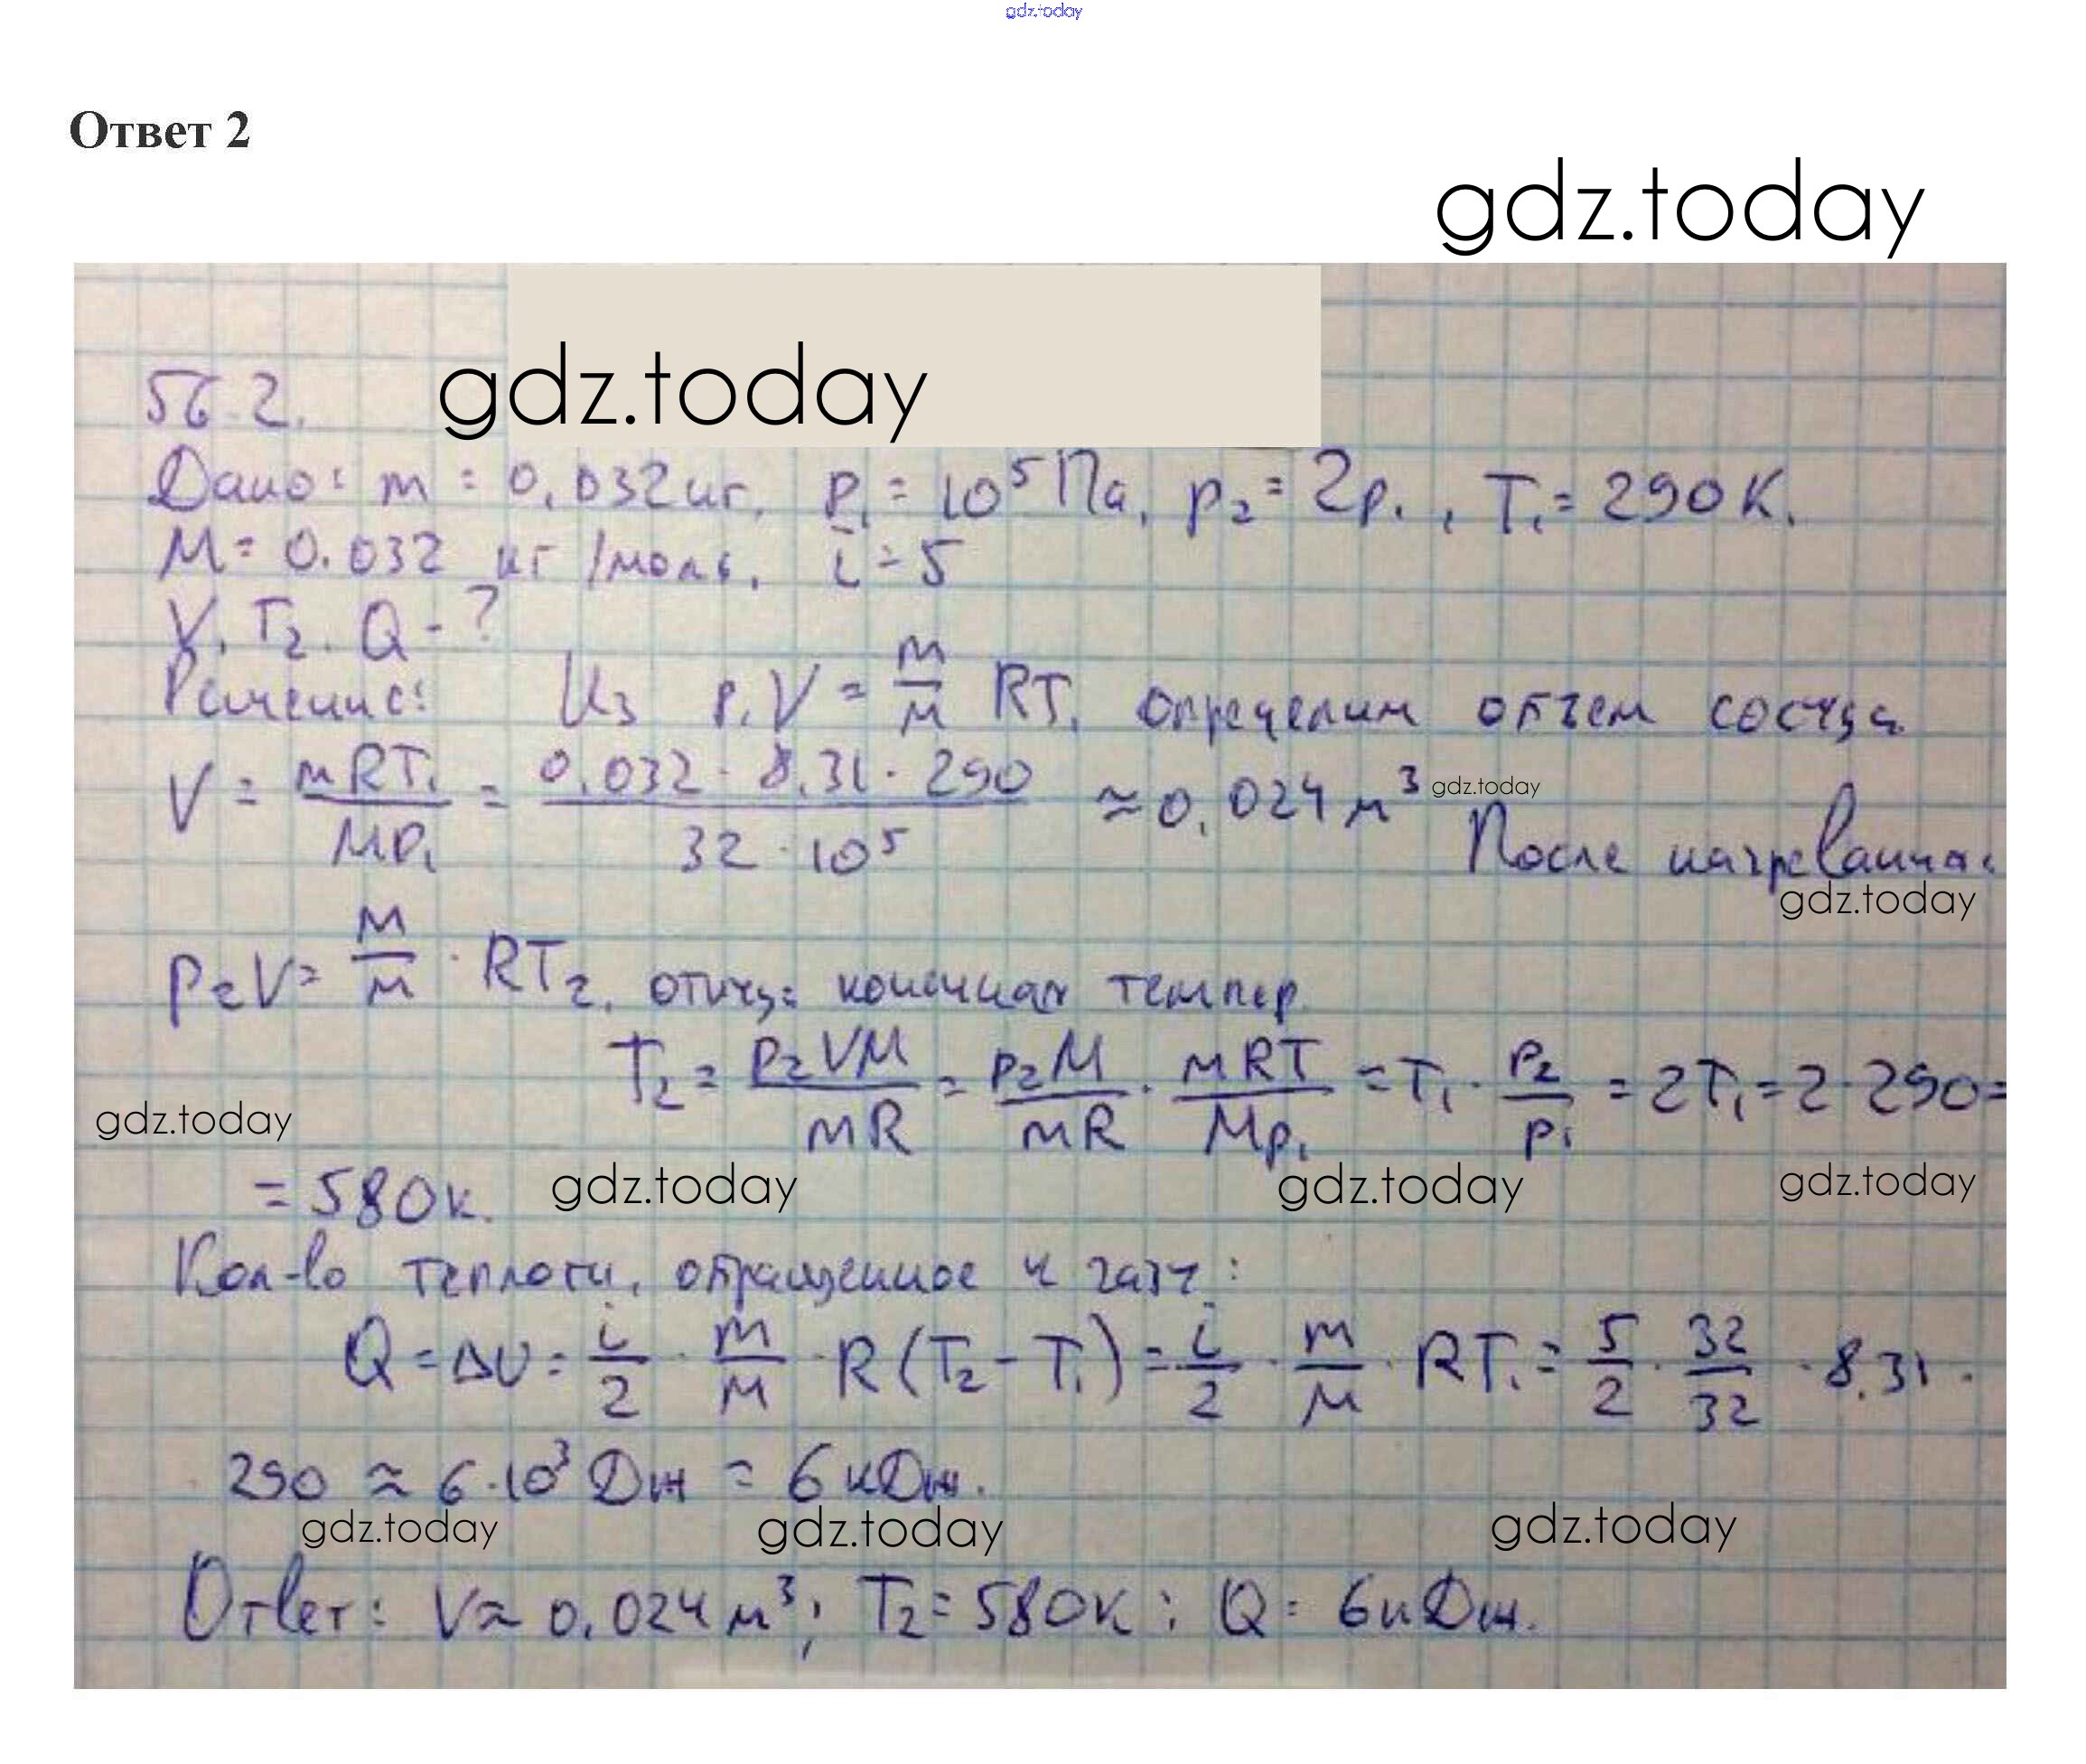 gdz.today
Ответ 2
gdz.today
56.2. gdz.today
Дано: m = 0,032 кг, p₁ = 10⁵ Па, p₂ = 2p₁, T₁ = 290 К.
M = 0.032 кг/моль, i = 5
V, T₂, Q - ?
Решение: Из p₁V = m/M RT₁ определим объем сосуда
V = mRT₁/Mp₁ = 0,032 · 8,31 · 290/32 · 10⁵ ≈ 0,024 м³ gdz.today
После нагревания:
gdz.today
p₂V = m/M · RT₂, откуда конечная темпер.
T₂ = p₂VM/mR = p₂M/mR · mRT/Mp₁ = T₁ · p₂/p₁ = 2T₁ = 2 · 290 =
gdz.today
= 580 К. gdz.today gdz.today gdz.today
Кол-во теплоты, обращенное к газу:
Q = ΔU = i/2 · m/M · R(T₂ - T₁) = i/2 · m/M · RT₁ = 5/2 · 32/32 · 8,31 ·
290 ≈ 6·10³ Дж = 6 кДж.
gdz.today gdz.today gdz.today
Ответ: V ≈ 0,024 м³; T₂ = 580 К; Q = 6 кДж.